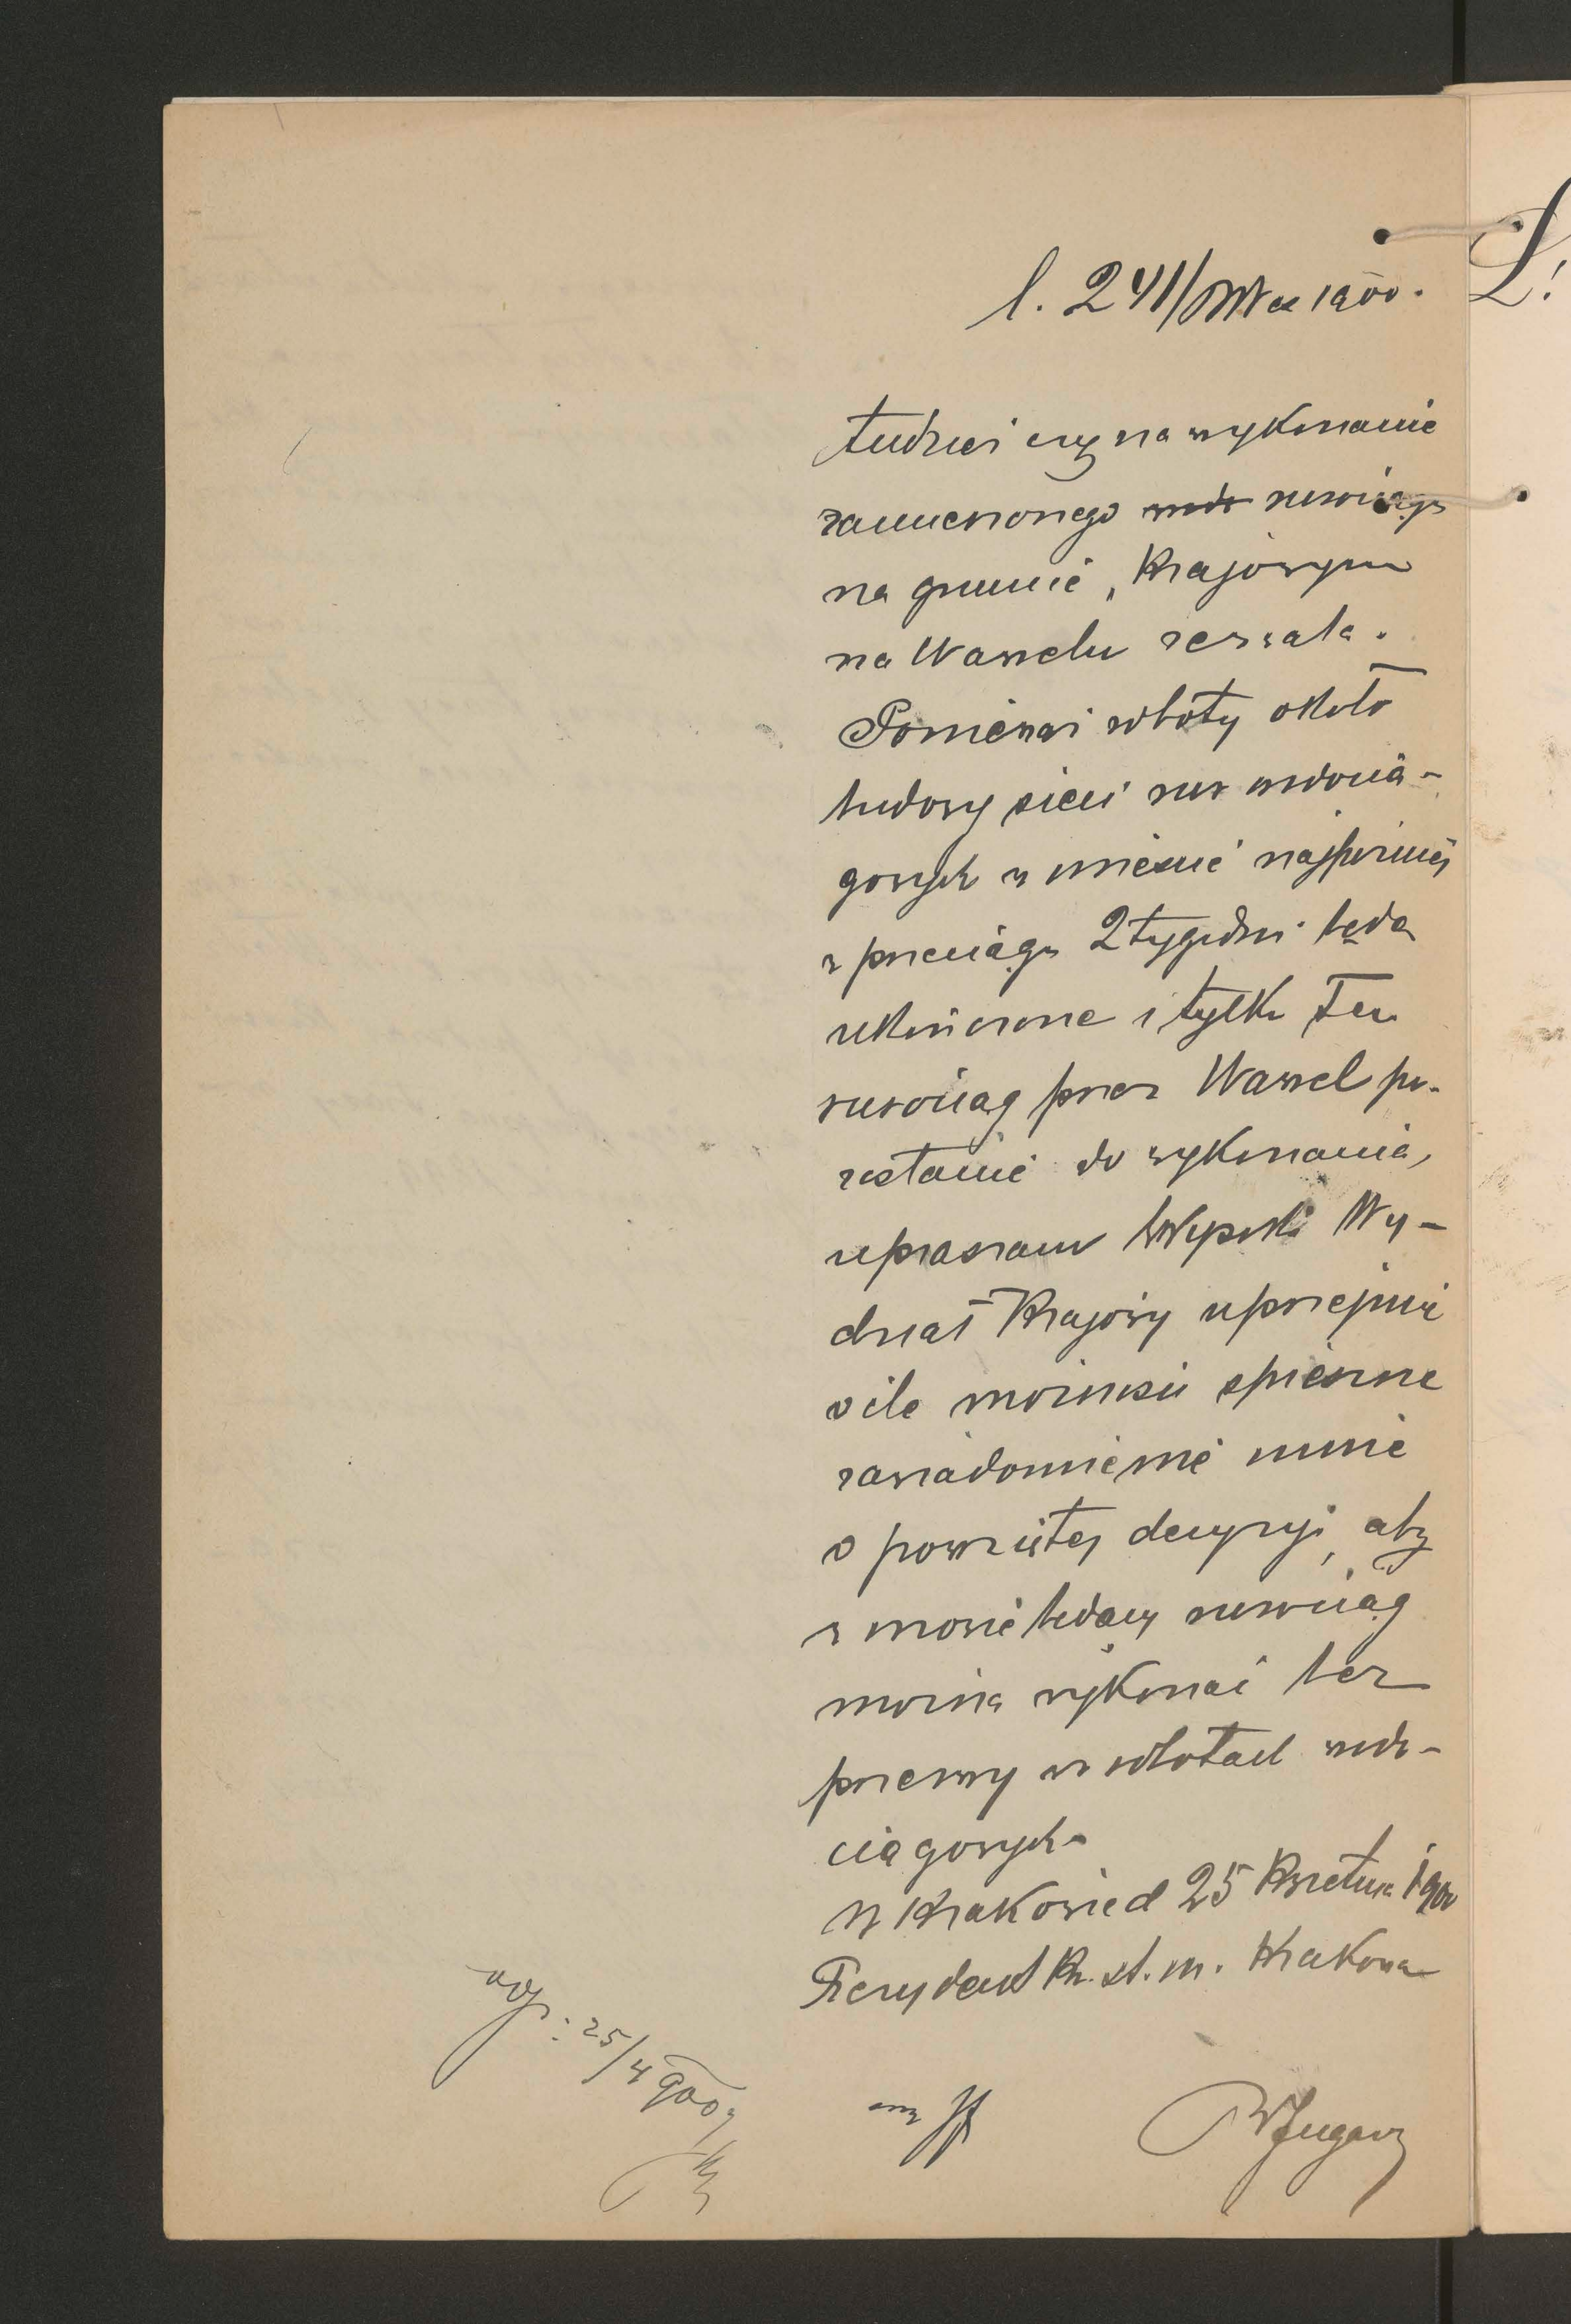 l. 241/ W ex 1900.
tudzież czy na wykonanie
zamierzonego rurociągu
na gruncie „Krajowym
na Wawelu zezwala.
Ponieważ roboty około
budowy sieci rur wodocią-
gowych w mieście najpóźniej
w przeciągu 2 tygodni będą
ukończone i tylko Ten
rurociąg przez Wawel po-
zostanie do wykonania,
upraszam Wysoki Wy-
dział Krajowy uprzejmie
o ile możności spieszne
zawiadomienie mnie
o powziętej decyzyi, aby
w mowie będący rurociąg
można wykonać bez
przerwy w robotach wodo-
ciągowych.
W Krakowie d 25 Kwietnia 1900
Prezydent Kr. st. m. Krakowa
25/4 900